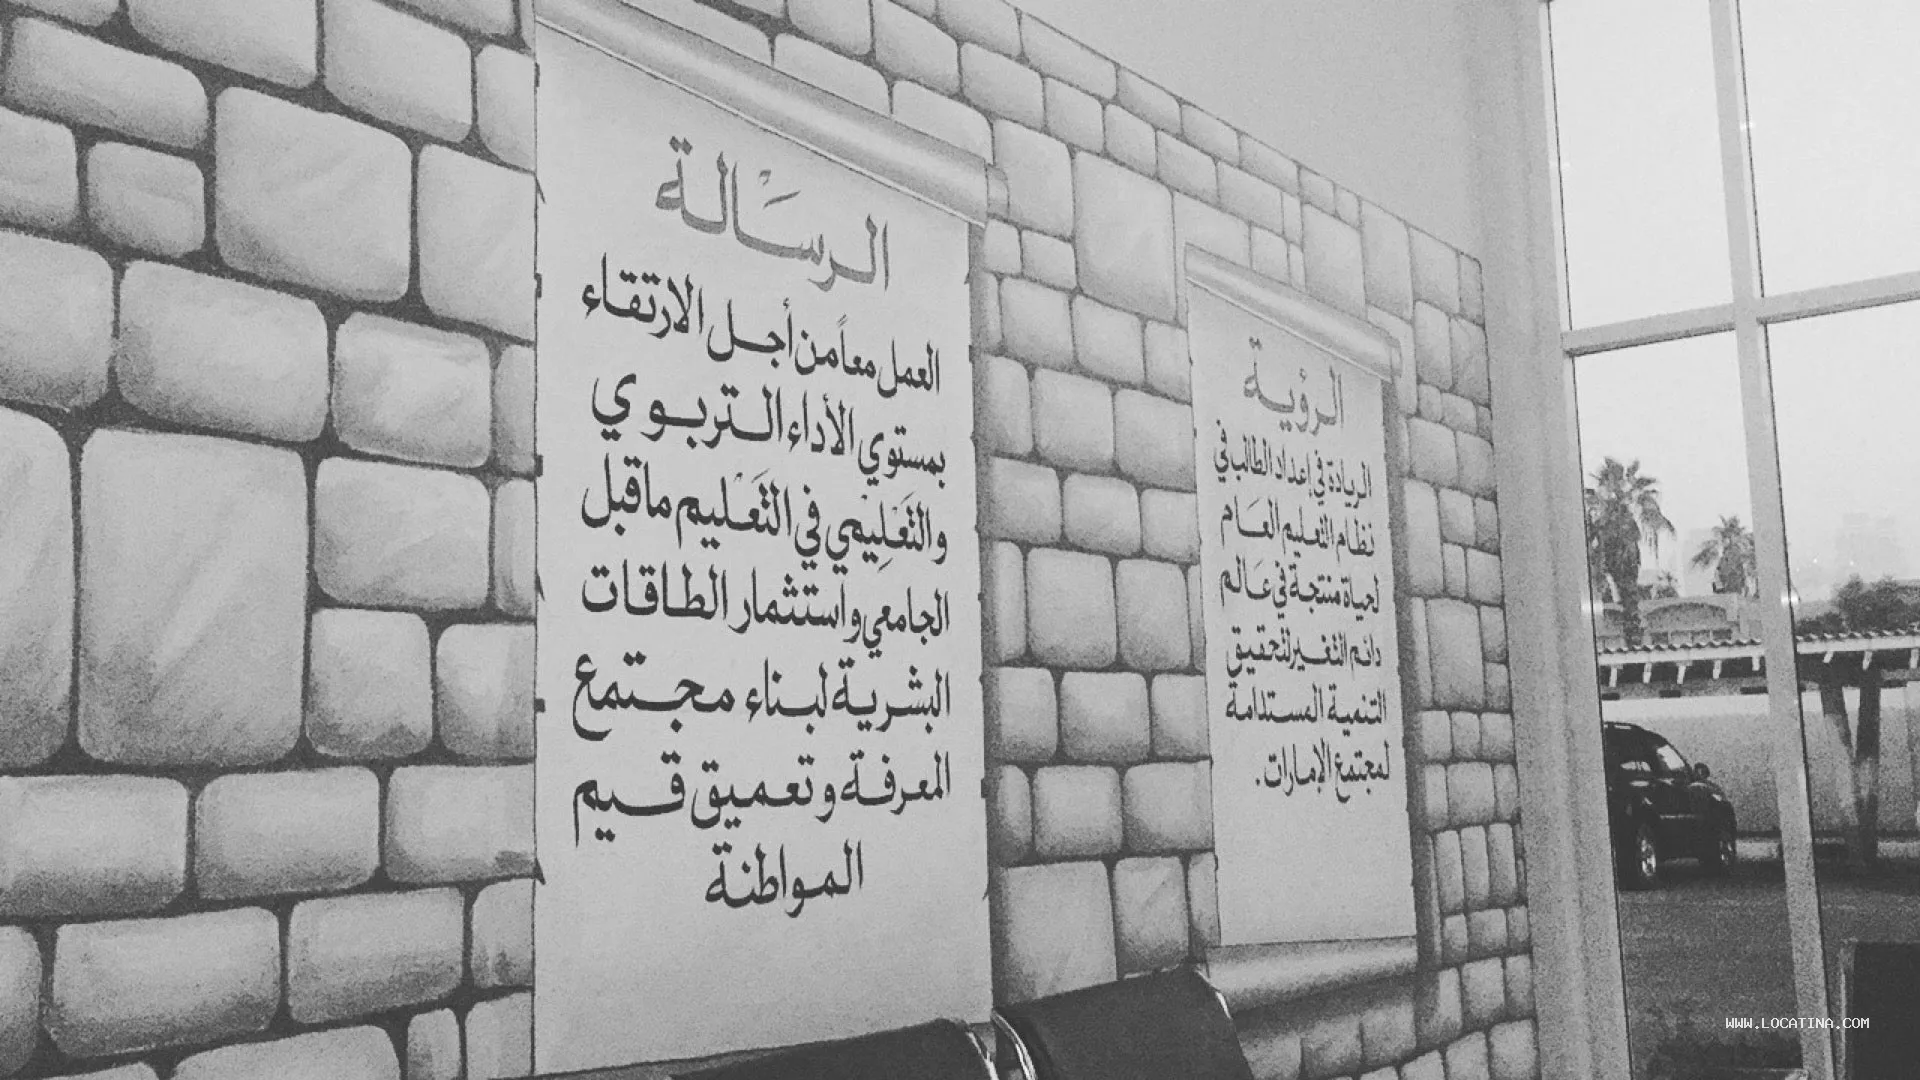 الرسالة
العمل معاً من أجل الارتقاء
بمستوي الأداء التربوي
والتعليمي في التعليم ماقبل
الجامعي واستثمار الطاقات
البشرية لبناء مجتمع
المعرفة وتعميق قيم
المواطنة
الرؤية
الريادة في إعداد الطالب في
نظام التعليم العام
لحياة منتجة في عالم
دائم التغير لتحقيق
التنمية المستدامة
لمجتمع الإمارات.
WWW.LOCATINA.COM